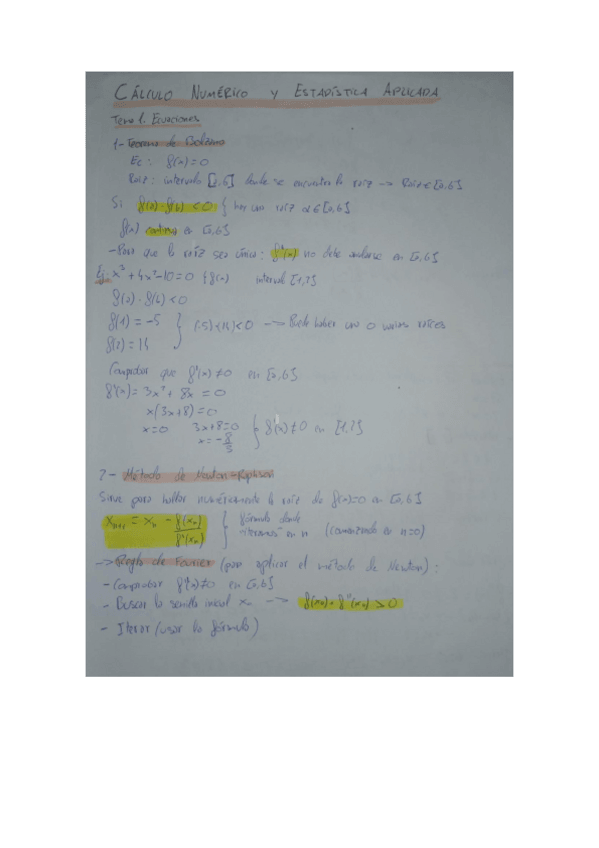 CÁLCULO NUMÉRICO Y ESTADÍSTICA APLICADA
Tema 1. Ecuaciones
1- Teorema de Bolzano
Ec: f(x)=0
Raíz: intervalo [a,b] donde se encuentra la raíz -> Raíz ∈ [a,b]
Si f(a)·f(b) < 0 } hay una raíz α ∈ [a,b]
f(x) continua en [a,b]
- Para que la raíz sea única: f'(x) no debe anularse en [a,b]
Ej: x³ + 4x² - 10 = 0 { f(x) interval [1,2]
f(a)·f(b) < 0
f(1) = -5 } (-5)·(14) < 0 -> Puede haber una o varias raíces
f(2) = 14
Comprobar que f'(x) ≠ 0 en [a,b]
f'(x) = 3x² + 8x = 0
x(3x+8) = 0
x=0 3x+8=0 } f'(x) ≠ 0 en [1,2]
x = -8/3
2- Método de Newton-Raphson
Sirve para hallar numéricamente la raíz de f(x)=0 en [a,b]
xₙ₊₁ = xₙ - f(xₙ)/f'(xₙ) } fórmula donde "iteramos" en n (comenzando en n=0)
-> Regla de Fourier (para aplicar el método de Newton):
- Comprobar f'(x) ≠ 0 en [a,b]
- Buscar la semilla inicial x₀ -> f(x₀)·f''(x₀) > 0
- Iterar (usar la fórmula)